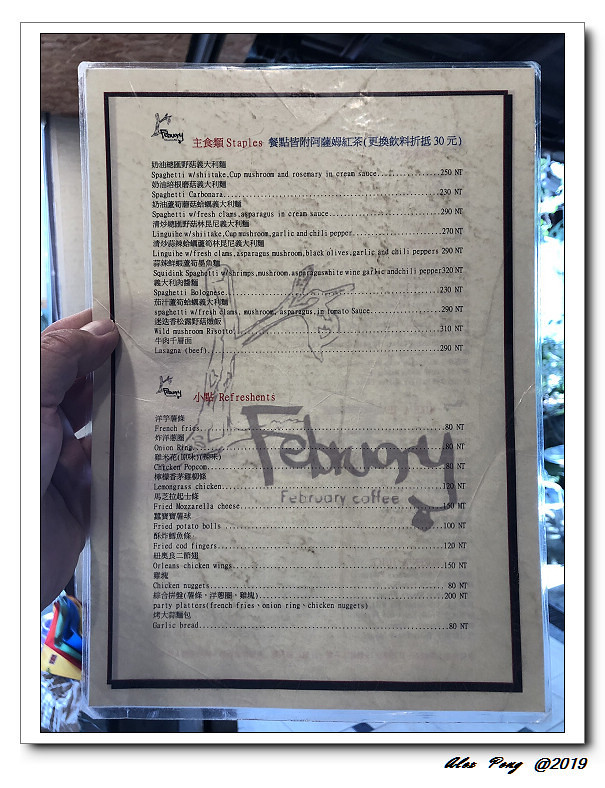 Febuary
主食類 Staples 餐點皆附阿薩姆紅茶(更換飲料折抵30元)
奶油總匯野菇義大利麵
Spaghetti w/shiitake,Cup mushroom and rosemary in cream sauce...................250 NT
奶油培根蘑菇義大利麵
Spaghetti Carbonara...................230 NT
奶油蘆筍蘑菇蛤蠣義大利麵
Spaghetti w/fresh clams,asparagus in cream sauce...................290 NT
清炒總匯野菇林昆尼義大利麵
Linguihe w/shiitake,Cup mushroom,garlic and chili pepper...................270 NT
清炒蒜辣蛤蠣蘆筍林昆尼義大利麵
Linguihe w/fresh clams,asparagus mushroom,black olives,garlic and chili peppers 290 NT
蒜辣鮮蝦蘆筍墨魚麵
Squidink Spaghetti w/shrimps,mushroom.asparaguswhite wine garlic andchili pepper320 NT
義大利肉醬麵
Spaghetti Bolognese...................230 NT
茄汁蘆筍蛤蠣義大利麵
spaghetti w/fresh clams, mushroom, asparagus,in tomato Sauce...................290 NT
迷迭香松露野菇燉飯
Wild mushroom Risotto...................310 NT
牛肉千層面
Lasagna (beef)...................290 NT
Febuary
小點 Refreshents
洋芋薯條
French fries...................80 NT
炸洋蔥圈
Onion Ring...................80 NT
雞米花(原味)(辣味)
Chicken Popcom...................80 NT
檸檬香茅雞柳條
Lemongrass chicken...................120 NT
馬芝拉起士條
Fried Mozzarella cheese...................150 NT
蠶寶寶薯球
Fried potato bolls...................100 NT
酥炸鱈魚條
Fried cod fingers...................120 NT
紐奧良二節翅
Orleans chicken wings...................150 NT
雞塊
Chicken nuggets................... 80 NT
綜合拼盤(薯條，洋蔥圈，雞塊)...................200 NT
party platters(french fries、onion ring、chicken nuggets)
烤大蒜麵包
Garlic bread...................80 NT
Februany
February coffee
Alex Pong @2019